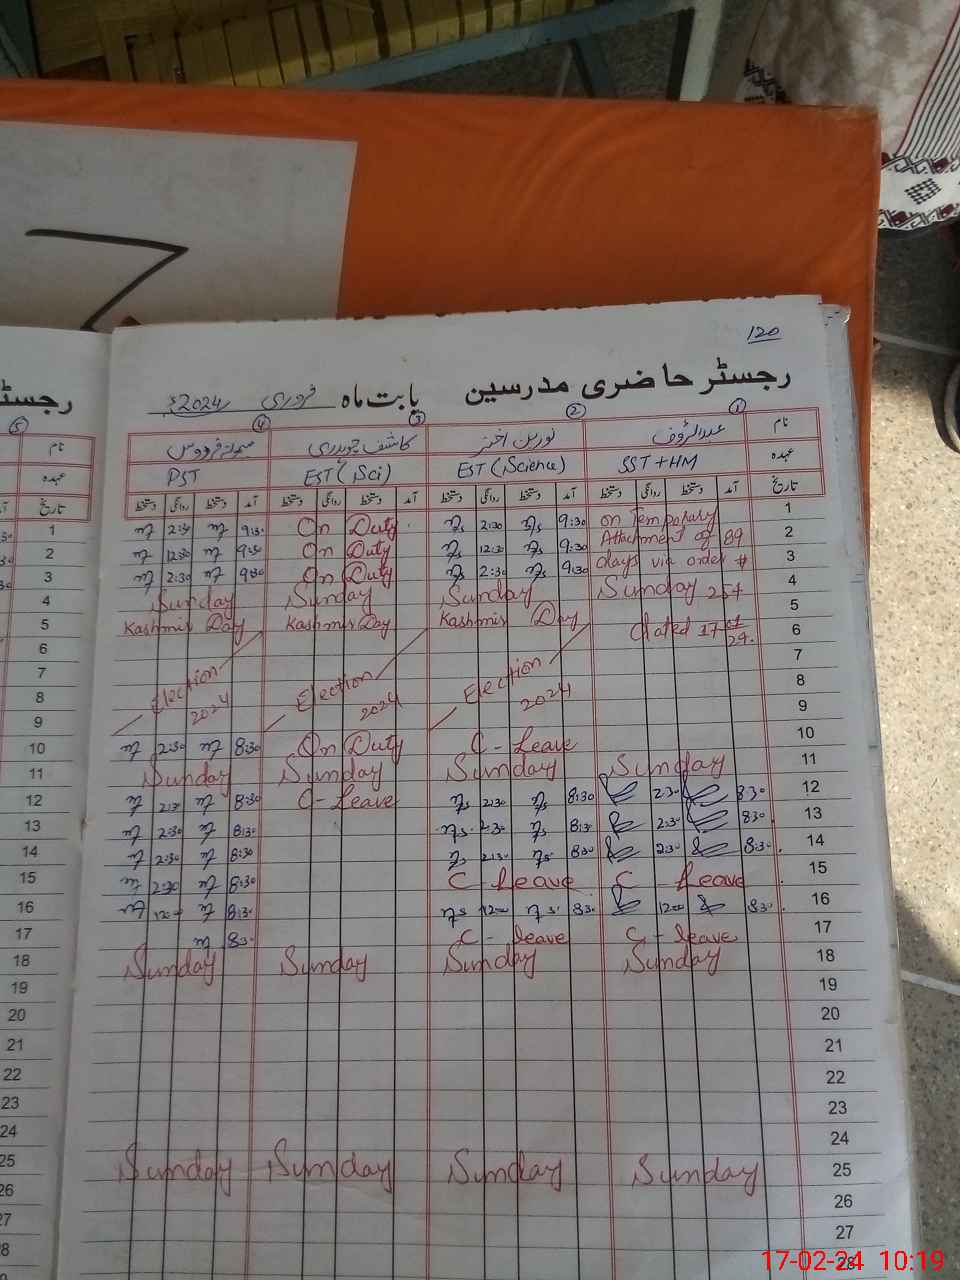 120
رجسٹر حاضری مدرسین بابت ماہ فروری 2024ء
رجسٹر
① ② ③ ④ ⑤
نام عبدالرؤف نورین اختر کاشف چوہدری نام
عہدہ SST + HM EST (Science) EST (Sci) PST عہدہ
تاریخ آمد دستخط روانگی دستخط آمد دستخط روانگی دستخط آمد دستخط روانگی دستخط آمد دستخط روانگی دستخط تاریخ
1 2:30 9:30 On Duty 2:30 9:30 On Temporary 1
2 12:30 9:30 On Duty 12:30 9:30 Attachment of 89 2
3 2:30 9:30 On Duty 2:30 9:30 days via order # 3
4 Sunday Sunday Sunday Sunday 254 4
5 Kashmir Day Kashmir Day Kashmir Day 5
6 dated 17-01/24. 6
7 Election 2024 Election 2024 Election 2024 7
8 8
9 9
10 2:30 8:30 On Duty C-Leave 10
11 Sunday Sunday Sunday Sunday 11
12 2:30 8:30 C-Leave 2:30 8:30 2:30 8:30 12
13 2:30 8:30 2:30 8:30 2:30 830 13
14 2:30 8:30 2:30 8:30 2:30 8:30 14
15 2:30 8:30 C-Leave C-Leave 15
16 1200 8:30 1200 830 1200 830 16
17 8:30 C-leave C-leave 17
18 Sunday Sunday Sunday Sunday 18
19 19
20 20
21 21
22 22
23 23
24 24
25 Sunday Sunday Sunday Sunday 25
26 26
27 27
28 28
17-02-24 10:19